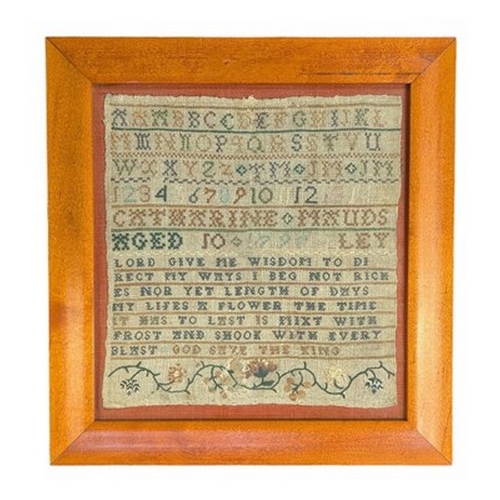 A A A B B C C D E F G H I J K L
M M N N O P Q R S S T V U
W X Y Z TM IM JM
1 2 3 4 6 7 8 9 10 12
CATHARINE MAUDS
AGED 10 LEY
LORD GIVE ME WISDOM TO DI
RECT MY WAYS I BEG NOT RICH
ES NOR YET LENGTH OF DAYS
MY LIFES A FLOWER THE TIME
IT HAS TO LAST IS MIXT WITH
FROST AND SHOOK WITH EVERY
BLAST GOD SAVE THE KING